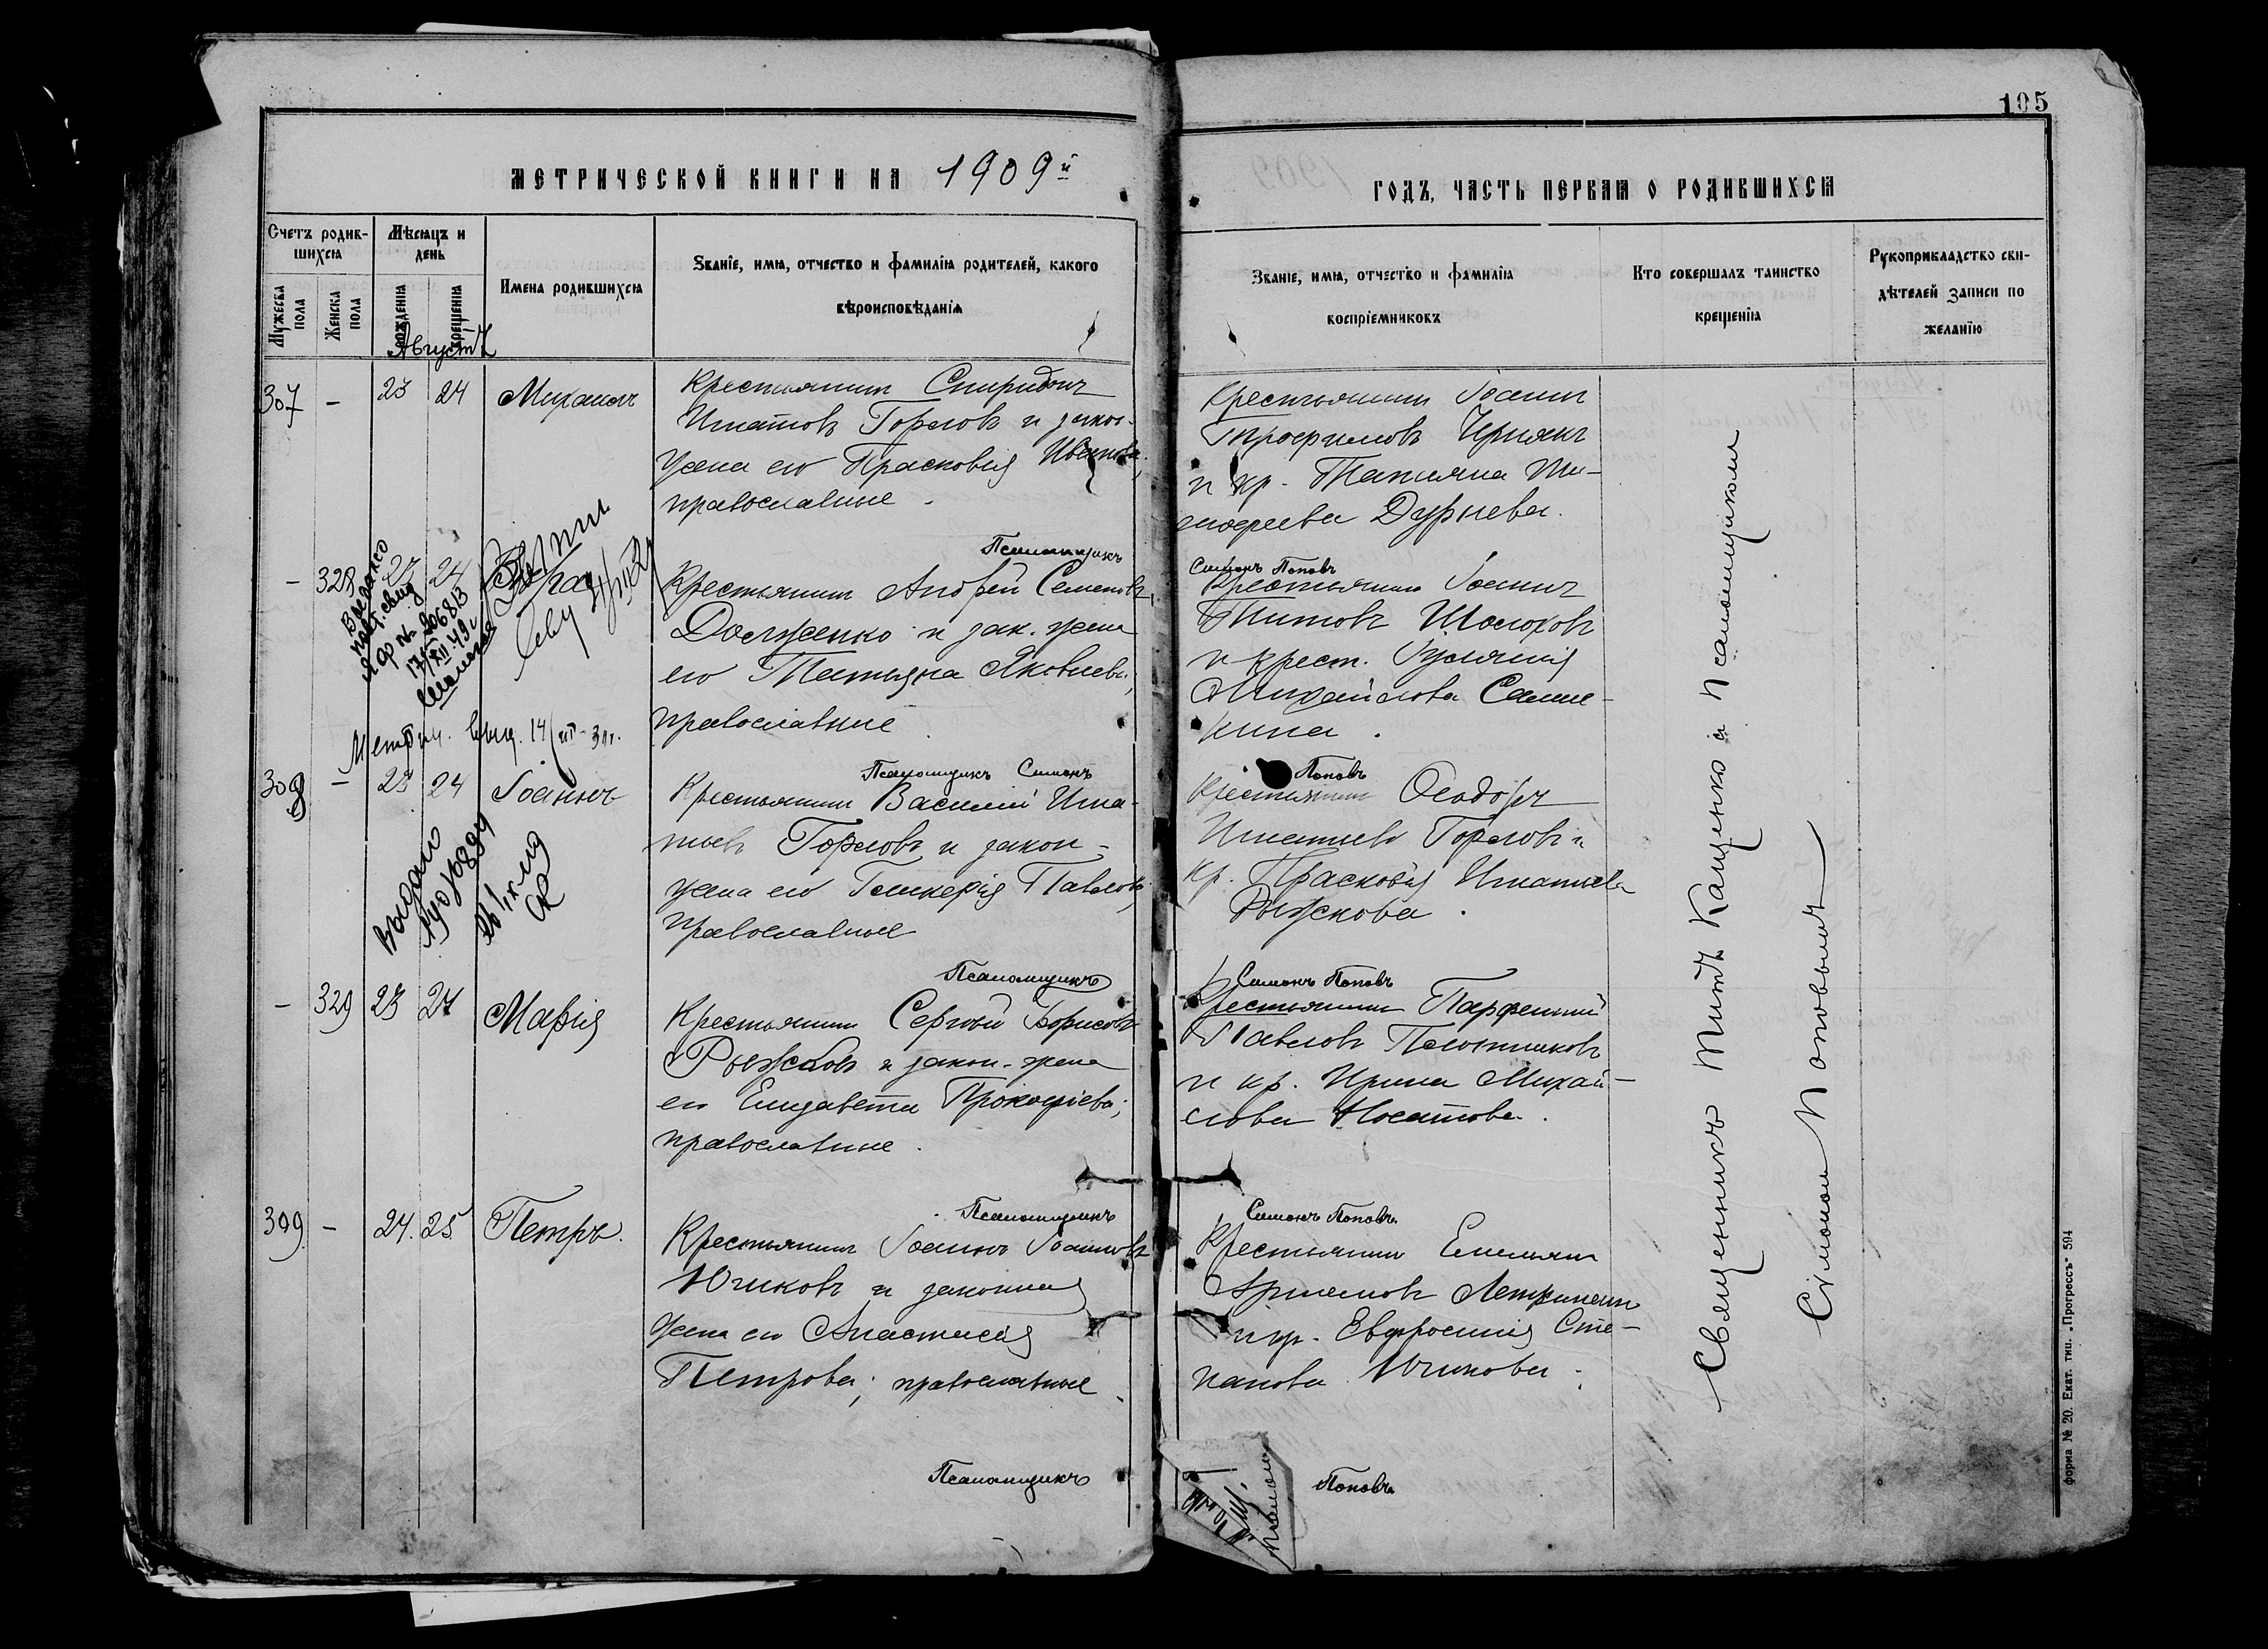 105
МЕТРИЧЕСКОЙ КНИГИ НА 1909й
ГОДЪ, ЧАСТЬ ПЕРВАЯ О РОДИВШИХСЯ
Счетъ родив-
шихся
Мѣсяцъ и
день
Мужеска пола
Женска пола
рожденія
крещенія
Имена родившихся
Званіе, имя, отчество и фамилія родителей, какого
вѣроисповѣданія
Званіе, имя, отчество и фамилія
воспріемниковъ
Кто совершалъ таинство
крещенія
Рукоприкладство сви-
дѣтелей записи по
желанію
Августъ
307 - 23 24 Михаилъ
Крестьянинъ Спиридонъ
Игнатовъ Горловъ и закон.
жена его Прасковія Иванова;
православные.
Крестьянинъ Іоаннъ
Трофимовъ
и кр. Татіяна Ти-
мофеева Дурнева.
Псаломщикъ
Симонъ Поповъ
- 328 23 24
Крестьянинъ Андрей Семеновъ
Долженко и зак. жена
его Татьяна Яковлева;
православные
Крестьянинъ Іоаннъ
Титовъ Шолоховъ
и крест. Іуліянія
Михайлова Самше-
кина.
Выдано
17/XII-49г
Метрич. выд. 14/III-30г.
Псаломщикъ Симонъ
Поповъ
308 - 23 24 Іоаннъ
Крестьянинъ Василій Игна-
тьевъ Горловъ и закон-
жена его Гликерія Павлова;
православные
Крестьянинъ Ѳеодоръ
Игнатьевъ Горловъ и
кр. Прасковія Игнатьева
Рыжкова.
Выдано
Псаломщикъ
Симонъ Поповъ
- 329 23 24 Марія
Крестьянинъ Сергѣй Борисовъ
Рыжковъ и закон. жена
его Елизавета Прокофіева;
православные.
Крестьянинъ Парфеній
Павловъ Плотниковъ
и кр. Ирина Михай-
лова Носатова.
Псаломщикъ
Симонъ Поповъ.
309. - 24. 25. Петръ.
Крестьянинъ Іоаннъ Іоанновъ
Югиковъ и законная
жена его Анастасія
Петрова; православные
Крестьянинъ Емельянъ
Артемовъ
и кр. Евфросинія Сте-
панова Югикова.
Псаломщикъ
Поповъ
Священникъ Титъ Кащенко съ псаломщикомъ
Симономъ Поповымъ
форма № 20. Екат. тип. „Прогрессъ" 594